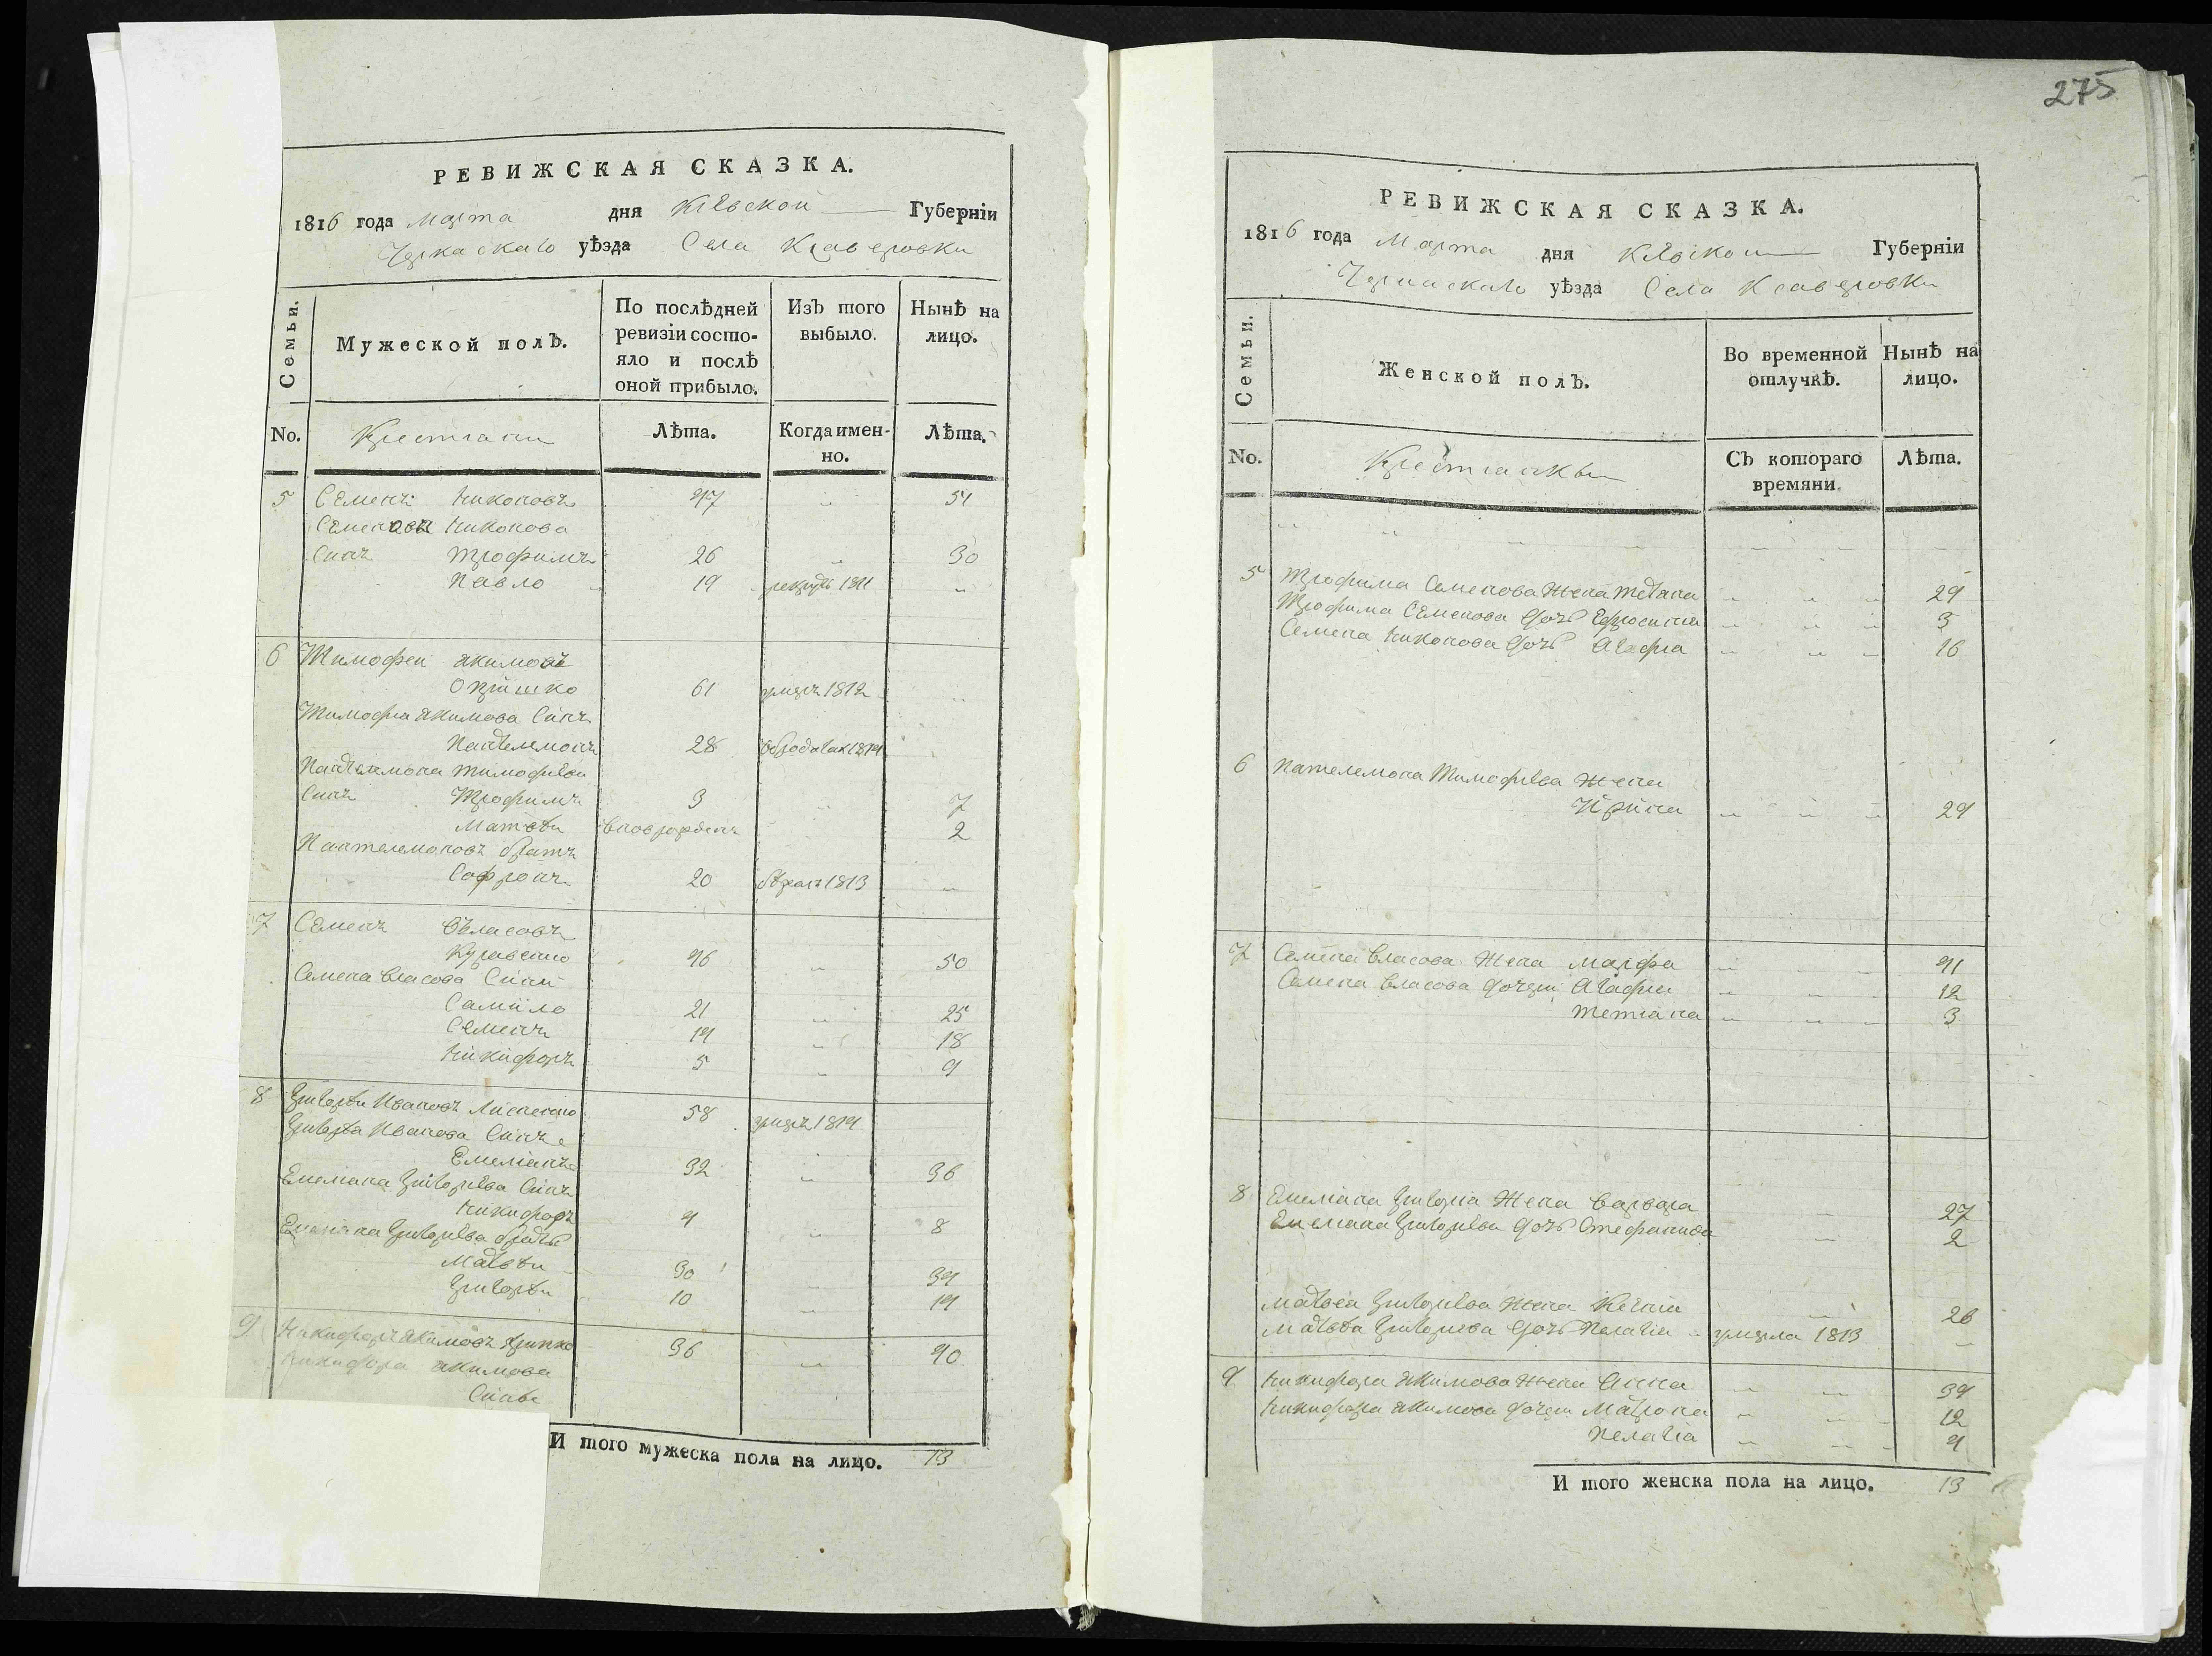 275
РЕВИЖСКАЯ СКАЗКА.
1816 года Марта дня Кіевской Губерніи
Черкаскаго уѣзда Села
Семьи.
Мужеской полъ.
По послѣдней ревизіи состо-
яло и послѣ
оной прибыло.
Изъ того
выбыло.
Нынѣ на
лицо.
No.
Крестяни
Лѣта.
Когда имен-
но.
Лѣта.
5 Семенъ Никоновъ 47 51
Семенова Никонова
Синъ Трофимъ 26 30
Павло 19 рекрутъ 1811
6 Тимофей Акимовъ
61 умеръ 1812
Тимофея Акимова Синъ
Пантелемонъ 28 1814
Пантелемона Тимофѣева
Синъ Трофимъ 3 7
Матвѣй 2
Пантелемоновъ братъ
Софронъ 20 1813
7 Семенъ Власовъ
46 50
Семена Власова Сини
Самійло 21 25
Семенъ 14 18
Никифоръ 5 9
8 Григорѣй Ивановъ 58 умеръ 1814
Григорѣя Иванова Синъ
Емеліанъ 32 36
Емеліана Григорѣева Синъ
Никифоръ 4 8
Емеліана Григорѣева братья
Матвѣй 30 34
Григорѣй 10 14
9 Никифоръ Акимовъ 36 40
Никифора Акимова
Синъ
И того мужеска пола на лицо. 13
РЕВИЖСКАЯ СКАЗКА.
1816 года Марта дня Кіевской Губерніи
Черкаскаго уѣзда Села
Семьи.
Женской полъ.
Во временной
отлучкѣ.
Нынѣ на
лицо.
No.
Крестянки
Съ котораго
времяни.
Лѣта.
5 Трофима Семенова жена Тетяна 29
Трофима Семенова дочь Ефросинія
Семена Никонова дочь Агафія 16
6 Пателемона Тимофѣева жена
Ирина 29
7 Семена Власова жена Марфа 41
Семена Власова дочери Агафия 12
Тетіана 3
8 Емеліана Григорія жена Варвара 27
Емеліана Григорѣева дочь Стефанида 2
Матвѣя Григорѣева жена 26
Матвѣя Григорѣева дочь Пелагія умерла 1813
9 Никифора Акимова жена Анна 34
Никифора Акимова дочери Матрона 12
Пелагіа 4
И того женска пола на лицо. 13